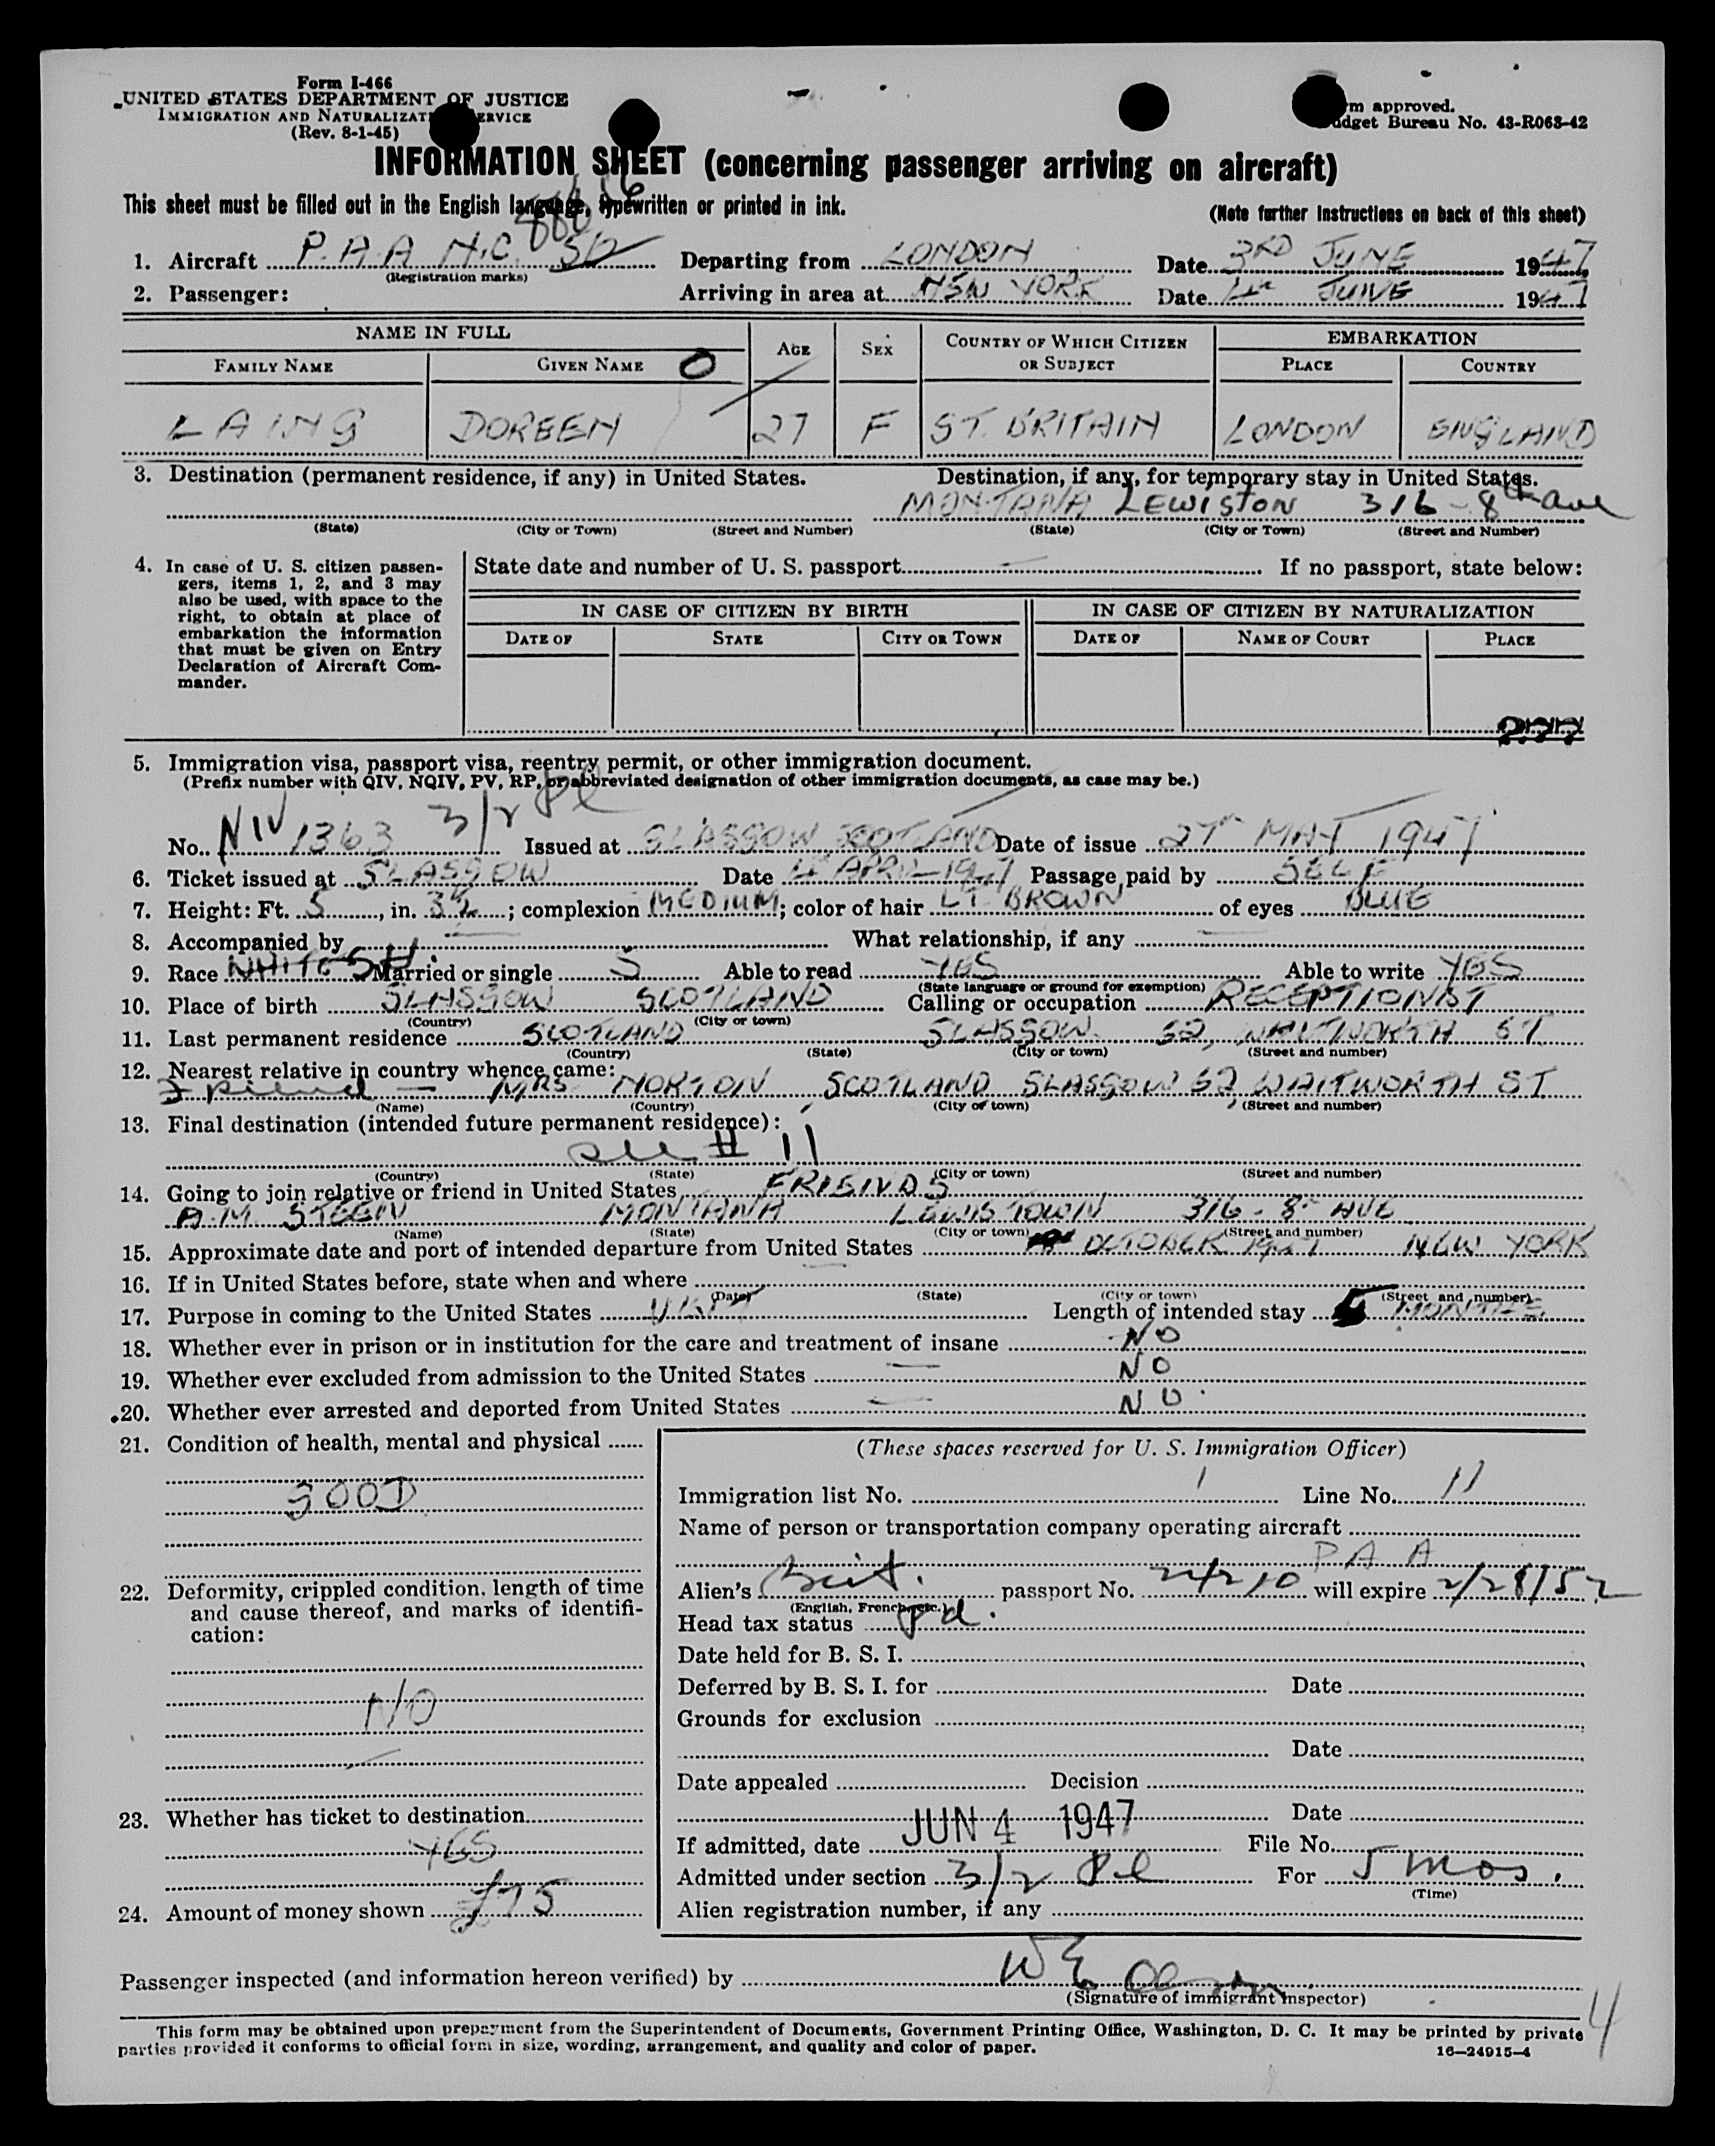 Form I-466
UNITED STATES DEPARTMENT OF JUSTICE
IMMIGRATION AND NATURALIZATION SERVICE
(Rev. 8-1-45)
Form approved.
Budget Bureau No. 43-R063-42
INFORMATION SHEET (concerning passenger arriving on aircraft)
This sheet must be filled out in the English language, typewritten or printed in ink.
(Note further instructions on back of this sheet)
1. Aircraft P.A.A N.C. Departing from LONDON Date 3RD JUNE 1947
(Registration marks)
2. Passenger: Arriving in area at NEW YORK Date 4TH JUNE 1947
NAME IN FULL AGE SEX COUNTRY OF WHICH CITIZEN OR SUBJECT EMBARKATION
FAMILY NAME GIVEN NAME PLACE COUNTRY
LAING DOREEN 27 F GT. BRITAIN LONDON ENGLAND
3. Destination (permanent residence, if any) in United States. Destination, if any, for temporary stay in United States.
MONTANA LEWISTON 316 - 8th ave
(State) (City or Town) (Street and Number) (State) (City or Town) (Street and Number)
4. In case of U. S. citizen passengers, items 1, 2, and 3 may also be used, with space to the right, to obtain at place of embarkation the information that must be given on Entry Declaration of Aircraft Commander.
State date and number of U. S. passport If no passport, state below:
IN CASE OF CITIZEN BY BIRTH IN CASE OF CITIZEN BY NATURALIZATION
DATE OF STATE CITY OR TOWN DATE OF NAME OF COURT PLACE
5. Immigration visa, passport visa, reentry permit, or other immigration document.
(Prefix number with QIV, NQIV, PV, RP, or abbreviated designation of other immigration documents, as case may be.)
3/2 Pl
No. NIV 1363 Issued at GLASGOW SCOTLAND Date of issue 27TH MAY 1947
6. Ticket issued at GLASGOW Date APRIL 1947 Passage paid by SELF
7. Height: Ft. 5, in. 3½; complexion MEDIUM; color of hair LT BROWN of eyes BLUE
8. Accompanied by — What relationship, if any —
9. Race WHITE Married or single S Able to read YES Able to write YES
(State language or ground for exemption)
10. Place of birth GLASGOW SCOTLAND Calling or occupation RECEPTIONIST
(Country) (City or town)
11. Last permanent residence SCOTLAND GLASGOW 52, WHITWORTH ST
(Country) (State) (City or town) (Street and number)
12. Nearest relative in country whence came:
Friend — MRS NORTON SCOTLAND GLASGOW 52 WHITWORTH ST
(Name) (Country) (City or town) (Street and number)
13. Final destination (intended future permanent residence):
see # 11
(Country) (State) (City or town) (Street and number)
14. Going to join relative or friend in United States, FRIENDS
A.M. STEEN MONTANA LEWISTOWN 316 - 8TH AVE
(Name) (State) (City or town) (Street and number)
15. Approximate date and port of intended departure from United States OCTOBER 1947 NEW YORK
16. If in United States before, state when and where
(Date) (State) (City or town) (Street and number)
17. Purpose in coming to the United States VISIT Length of intended stay 5 MONTHS
18. Whether ever in prison or in institution for the care and treatment of insane NO
19. Whether ever excluded from admission to the United States NO
20. Whether ever arrested and deported from United States NO
21. Condition of health, mental and physical
GOOD
22. Deformity, crippled condition, length of time and cause thereof, and marks of identification:
NO
23. Whether has ticket to destination
YES
24. Amount of money shown £75
(These spaces reserved for U. S. Immigration Officer)
Immigration list No. 1 Line No. 11
Name of person or transportation company operating aircraft
P A A
Alien's Brit. passport No. 24210 will expire 2/28/52
(English, French, etc.)
Head tax status pd.
Date held for B. S. I.
Deferred by B. S. I. for Date
Grounds for exclusion
Date
Date appealed Decision
Date
If admitted, date JUN 4 1947 File No.
Admitted under section 3/2 Pl For 5 mos.
(Time)
Alien registration number, if any
Passenger inspected (and information hereon verified) by
(Signature of immigrant inspector)
4
This form may be obtained upon prepayment from the Superintendent of Documents, Government Printing Office, Washington, D. C. It may be printed by private
parties provided it conforms to official form in size, wording, arrangement, and quality and color of paper.
16—24915-4